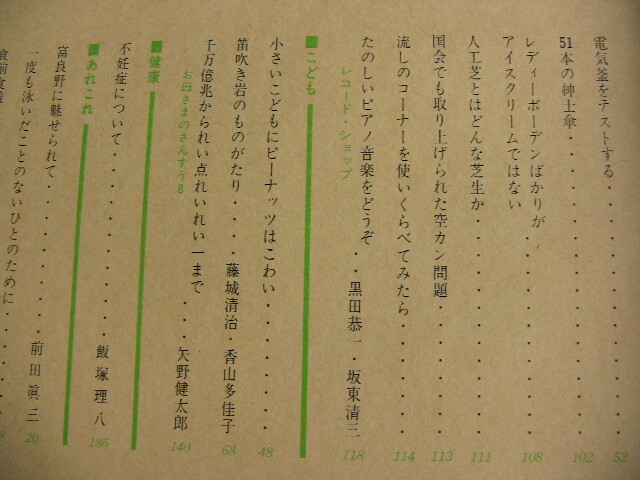 電気釜をテストする・・・・・・・・・・52
51本の紳士傘・・・・・・・・・・102
レディーボーデンばかりが
アイスクリームではない・・・・・・・・108
人工芝とはどんな芝生か・・・・・・・・111
国会でも取り上げられた空カン問題・・・・・・113
流しのコーナーを使いくらべてみたら・・・・・・114
レコード・ショップ
たのしいピアノ音楽をどうぞ・・黒田恭一・坂東清三 118
■こども
小さいこどもにピーナッツはこわい・・・・・・・48
笛吹き岩のものがたり・・・・藤城清治・香山多佳子 68
お母さまのさんすう8
千万億兆かられい点れいれい一まで・・・矢野健太郎 140
■健康
不妊症について・・・・・・・・・・飯塚理八 186
■あれこれ
富良野に魅せられて・・・・・・・・前田真三 20
一度も泳いだことのないひとのために・・・・・・8